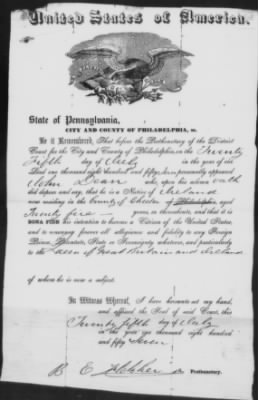 United States of America.
State of Pennsylvania,
CITY AND COUNTY OF PHILADELPHIA, ss.
Be it Remembered, That before the Prothonotary of the District
Court for the City and County of Philadelphia, on the Twenty
Fifth day of July in the year of the
Lord one thousand eight hundred and fifty personally appeared
John Dean who, upon his solemn oath
did depose and say, that he is a Native of Ireland
now residing in the County of Chester of Philadelphia, aged
Twenty five years, or thereabouts, and that it is
BONA FIDE his intention to become a Citizen of the United States,
and to renounce forever all allegiance and fidelity to any Foreign
Prince, Potentate, State or Sovereignty whatever, and particularly
to the Queen of Great Britain and Ireland
of whom he is now a subject.
In Witness Whereof, I have hereunto set my hand,
and affixed the Seal of said Court, this
Twenty fifth day of July
in the year one thousand eight hundred
and fifty Seven
B E Prothonotary.